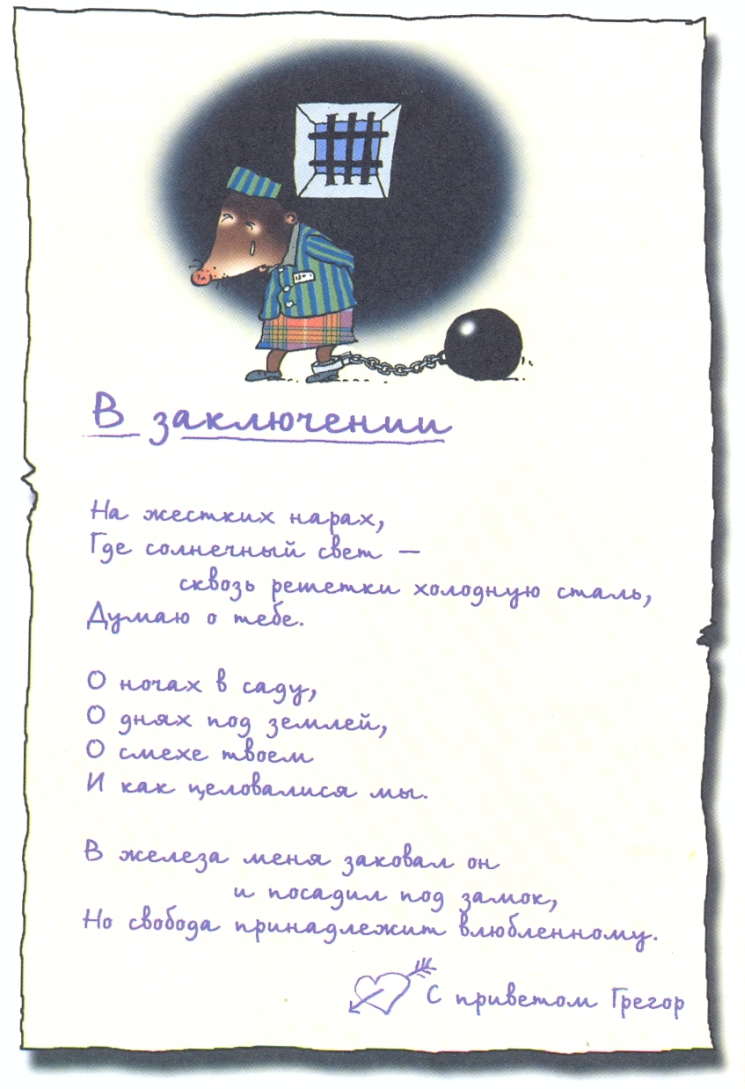 В заключении
На жестких нарах,
Где солнечный свет —
сквозь решетки холодную сталь,
Думаю о тебе.
О ночах в саду,
О днях под землей,
О смехе твоем
И как целовалися мы.
В железа меня заковал он
и посадил под замок,
Но свобода принадлежит влюбленному.
С приветом Грегор